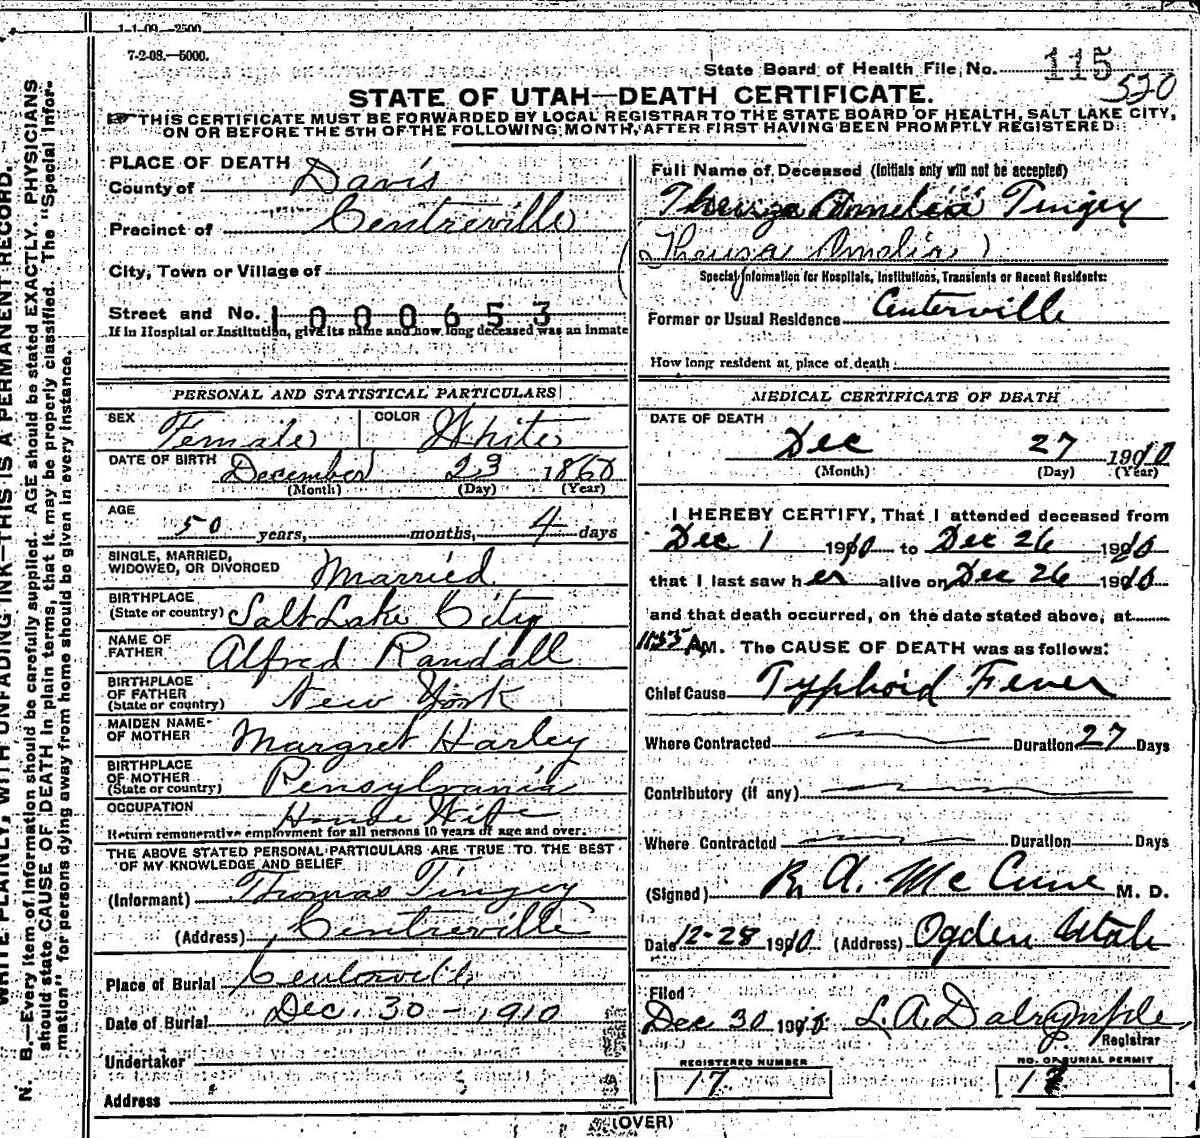 1-1-09—2500
7-2-08.—5000.
State Board of Health File No. 115
520
STATE OF UTAH—DEATH CERTIFICATE.
THIS CERTIFICATE MUST BE FORWARDED BY LOCAL REGISTRAR TO THE STATE BOARD OF HEALTH, SALT LAKE CITY,
ON OR BEFORE THE 5TH OF THE FOLLOWING MONTH, AFTER FIRST HAVING BEEN PROMPTLY REGISTERED.
PLACE OF DEATH
County of Davis
Precinct of Centreville
City, Town or Village of
Street and No. 1000653
If in Hospital or Institution, give its name and how long deceased was an inmate
PERSONAL AND STATISTICAL PARTICULARS
SEX Female COLOR White
DATE OF BIRTH December 23 1860
(Month) (Day) (Year)
AGE
50 years, months, 4 days
SINGLE, MARRIED,
WIDOWED, OR DIVORCED Married
BIRTHPLACE
(State or country) Salt Lake City
NAME OF
FATHER Alfred Randall
BIRTHPLACE
OF FATHER
(State or country) New York
MAIDEN NAME
OF MOTHER Margret Harley
BIRTHPLACE
OF MOTHER
(State or country) Pensylvania
OCCUPATION House Wife
Return remunerative employment for all persons 10 years of age and over.
THE ABOVE STATED PERSONAL PARTICULARS ARE TRUE TO THE BEST
OF MY KNOWLEDGE AND BELIEF
(Informant) Thomas Tingey
(Address) Centreville
Place of Burial Centerville
Date of Burial Dec. 30 - 1910
Undertaker
Address
Full Name of Deceased (Initials only will not be accepted)
Amelia Tingey
Amelia)
Special Information for Hospitals, Institutions, Transients or Recent Residents:
Former or Usual Residence Centerville
How long resident at place of death
MEDICAL CERTIFICATE OF DEATH
DATE OF DEATH
Dec 27 1910
(Month) (Day) (Year)
I HEREBY CERTIFY, That I attended deceased from
Dec 1 1910 to Dec 26 1910
that I last saw her alive on Dec 26 1910
and that death occurred, on the date stated above, at
1155 A M. The CAUSE OF DEATH was as follows:
Chief Cause Typhoid Fever
Where Contracted Duration 27 Days
Contributory (if any)
Where Contracted Duration Days
(Signed) R. A. McCune M. D.
Date 12-28 1910 (Address) Ogden Utah
Filed
Dec 30 1910 L. A. Dalrymple,
Registrar
REGISTERED NUMBER
17
NO. OF BURIAL PERMIT
(OVER)
WRITE PLAINLY, WITH UNFADING INK—THIS IS A PERMANENT RECORD.
N. B.—Every item of information should be carefully supplied. AGE should be stated EXACTLY. PHYSICIANS
should state CAUSE OF DEATH in plain terms, that it may be properly classified. The "Special Infor-
mation" for persons dying away from home should be given in every instance.